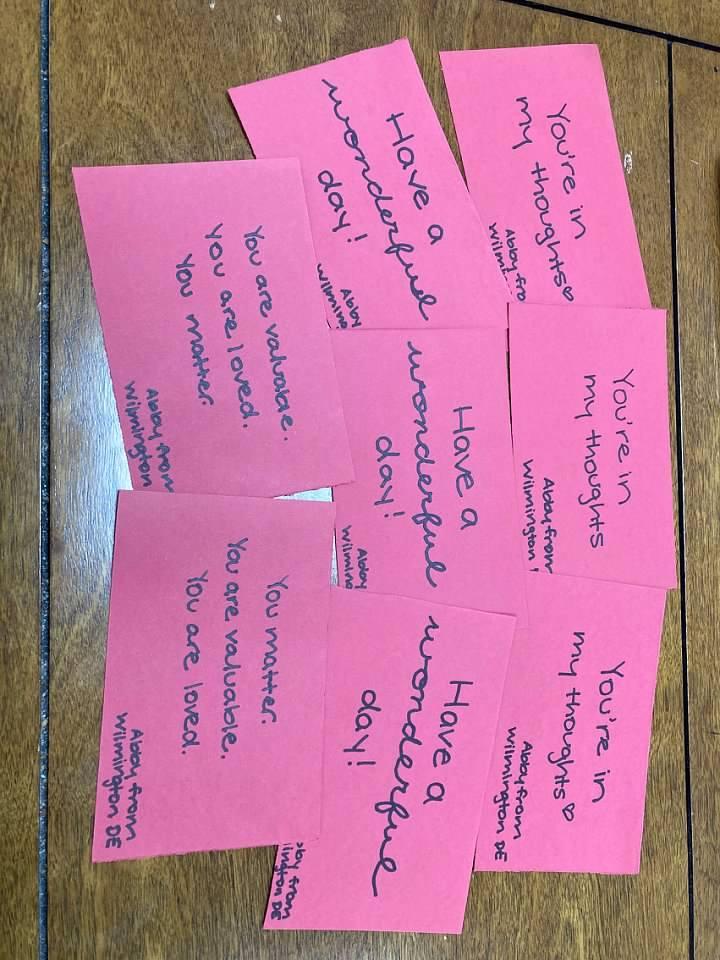 You're in
my thoughts♡
Abby fro
Wilmi
You're in
my thoughts
Abby from
Wilmington
You're in
my thoughts♡
Abby from
Wilmington DE
Have a
wonderful
day!
Abby
Wilming
Have a
wonderful
day!
Abby
Wilming
Have a
wonderful
day!
bby from
ilmington DE
You are valuable.
You are loved.
You matter.
Abby from
Wilmington
You matter.
You are valuable.
You are loved.
Abby from
Wilmington DE